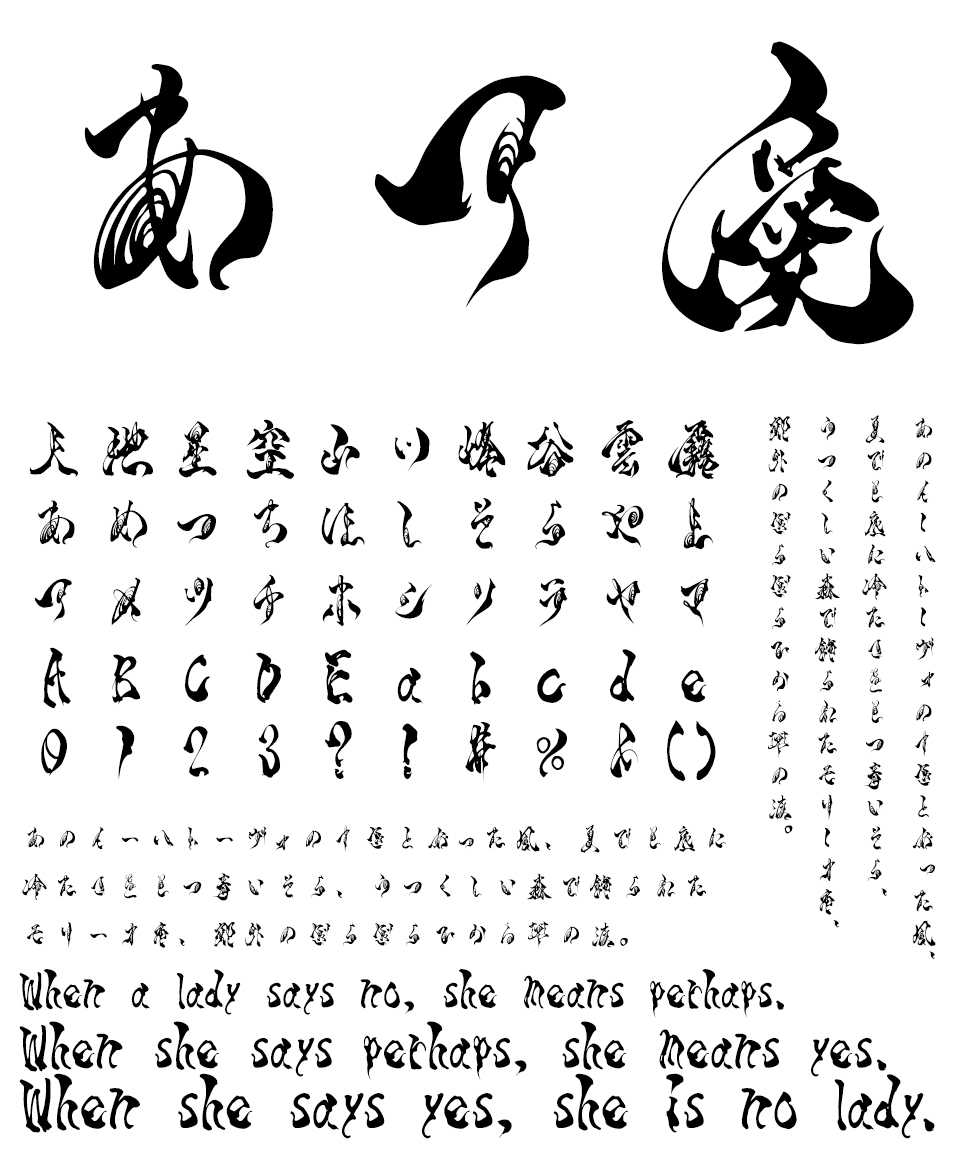 あ ア
天 地 星 空 山 川 峰 谷 雲 霧
あ め つ ち ほ し そ ら や ま
ア メ ツ チ ホ シ ソ ラ ヤ マ
A B C D E a b c d e
0 1 2 3 ? ! # % & ()
あのイーハトーヴォのすきとおった風、
夏でも底に冷たさをもつ青いそら、
うつくしい森で飾られたモリーオ市、
郊外のぎらぎらひかる草の波。
あのイーハトーヴォのすきとおった風、夏でも底に
冷たさをもつ青いそら、うつくしい森で飾られた
モリーオ市、郊外のぎらぎらひかる草の波。
When a lady says no, she means perhaps.
When she says perhaps, she means yes.
When she says yes, she is no lady.